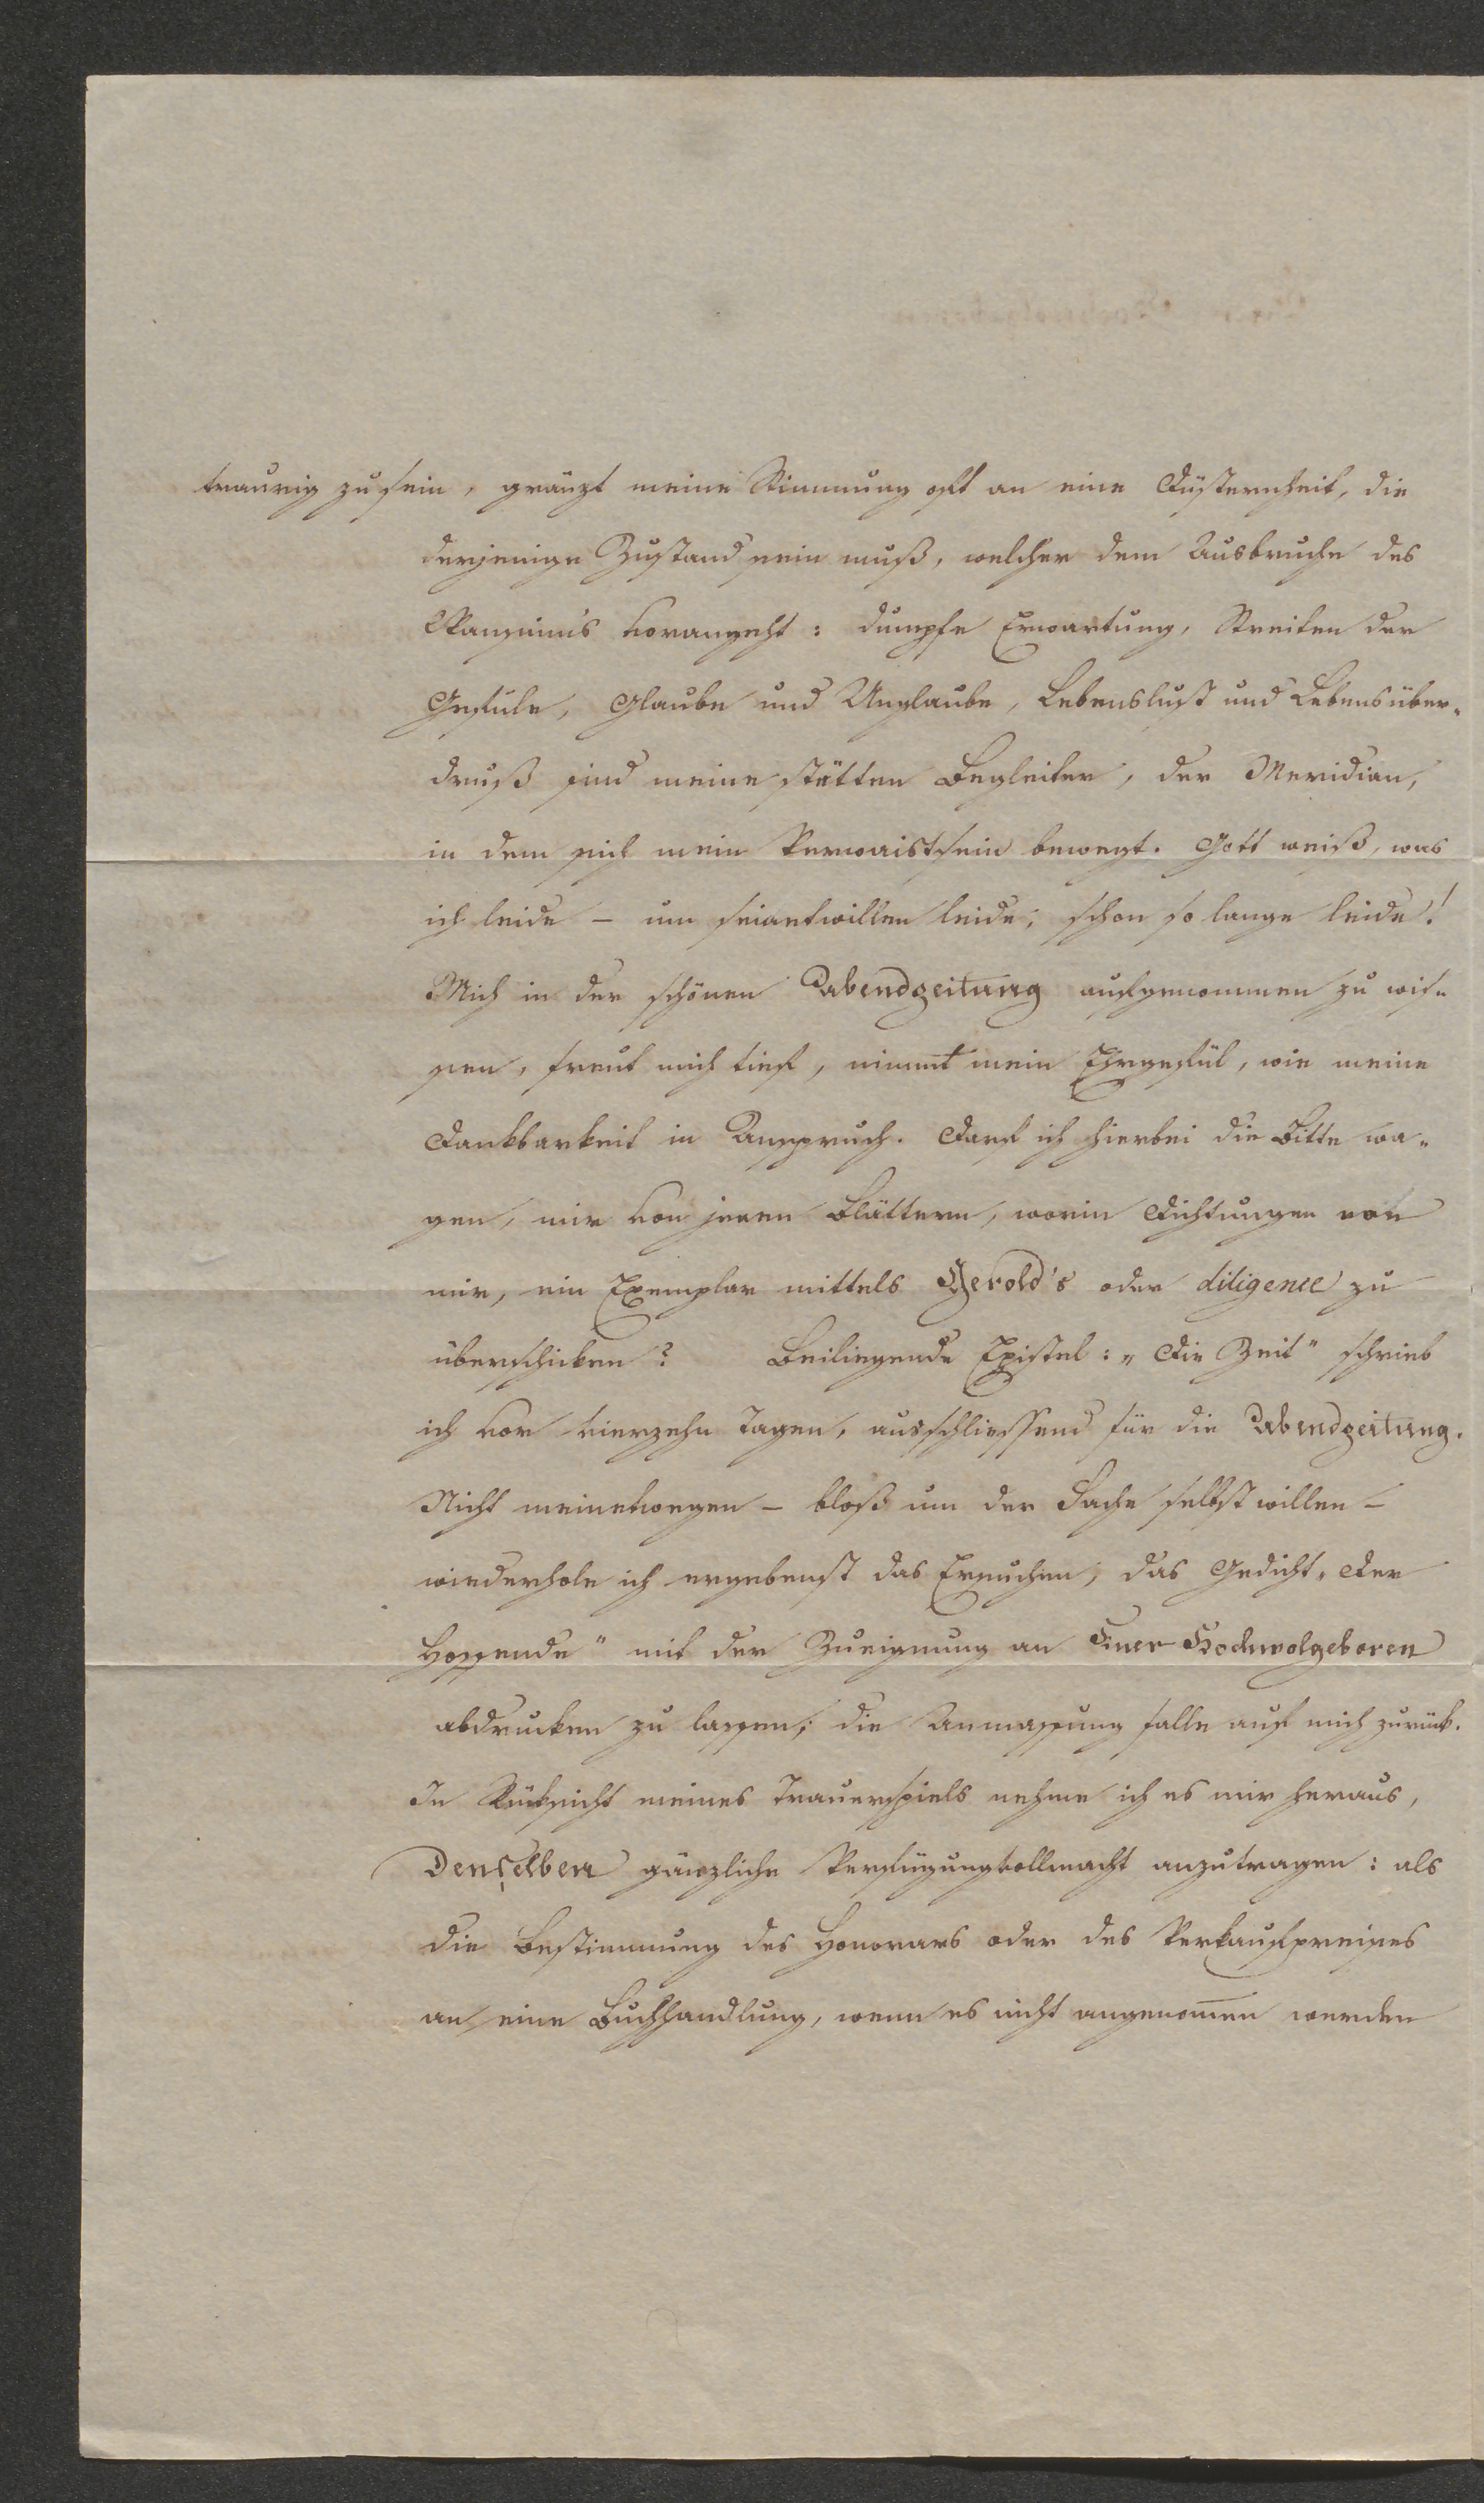 traurig zu sein, gränzt meine Stimmung oft an eine Düsternheit, die
derjenige Zustand sein muß, welcher dem Ausbruche des
Wansinns vorangeht: dumpfe Erwartung, Streiten der
Gefüle, Glaube und Unglaube, Lebenslust und Lebensüber-
druß sind meine stätten Begleiter, der Meridian,
in dem sich mein Verwaistsein bewegt. Gott weiß, was
ich leide – um seinetwillen leide, schon so lange leide!
Mich in der schönen Abendzeitung aufgenommen zu wis-
sen, freut mich tief, nimmt mein Ehrgefül, wie meine
Dankbarkeit in Anspruch. Darf ich hierbei die Bitte wa-
gen, mir von jenen Blättern, worin Dichtungen von
mir, ein Exemplar mittels Gerold's oder diligence zu
überschicken? Beiliegende Epistel: „Die Zeit" schrieb
ich vor vierzehn Tagen, ausschliessend für die Abendzeitung.
Nicht meinetwegen – bloß um der Sache selbst willen –
wiederhole ich ergebenst das Ersuchen, das Gedicht „Der
Hoffende" mit der Zueignung an Euer Hochwolgeboren
abdrucken zu lassen; die Anmassung falle auf mich zurück.
In Rüksicht meines Trauerspiels nehme ich es mir heraus,
Denselben gänzliche Verfügungvollmacht anzutragen: als
die Bestimmung des Honorars oder des Verkaufpreises
an eine Buchhandlung, wenn es nicht angenom̅en werden